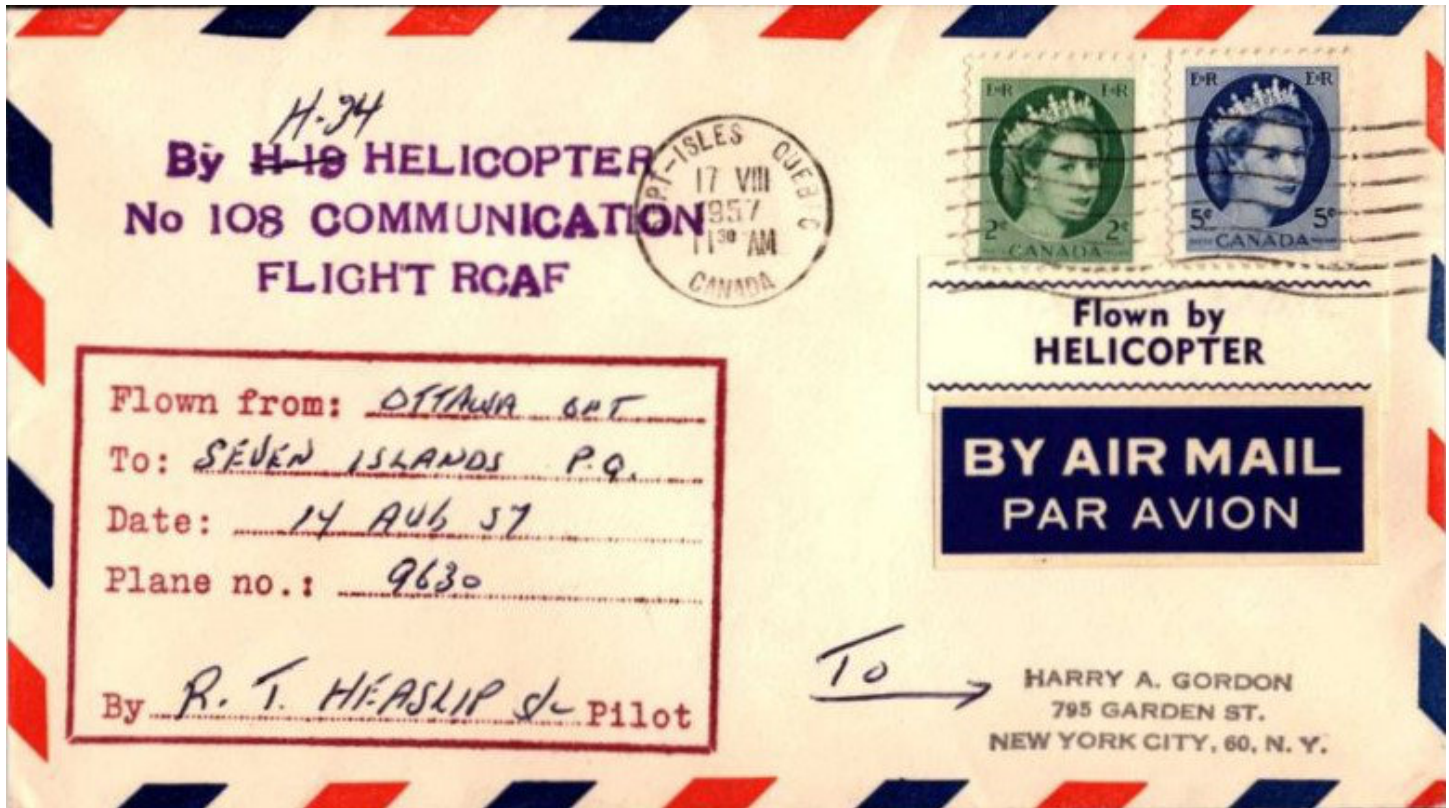 H-34
By H-19 HELICOPTER
No 108 COMMUNICATION
FLIGHT RCAF
SEPT-ISLES QUEBEC
17 VIII
1957
11 30 AM
CANADA
E R E R
2c 2c
CANADA
E R E R
5c 5c
CANADA
Flown by
HELICOPTER
BY AIR MAIL
PAR AVION
Flown from: OTTAWA ONT
To: SEVEN ISLANDS P.Q.
Date: 14 AUG 57
Plane no.: 9630
By R. T. HEASLIP S/L Pilot
To
HARRY A. GORDON
795 GARDEN ST.
NEW YORK CITY, 60, N. Y.